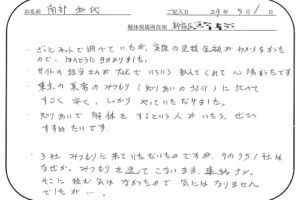 お名前 南部 和代 ご記入日 29年 5月 1日
解体現場所在地 新宿区
・ざっとネットで調べていたが、実際の見積金額がわからなかった
ので、ほんとうに助かりました。
サイトの担当さんが TELで いろいろ 教えてくれて 助かった
東京の業者の みつもり (知りあいの
すごく 安く、しっかり やっていただけました。
知りあいで 解体をするという人がいたら、ぜひ
すすめたいです。
・3社 みつもりに来ていただいたものですが、そのうち1社は
なぜか、みつもりを送ってこないまま、連絡なし。
そこに 頼む気は なかったので 気にはなりません
でしたが…。